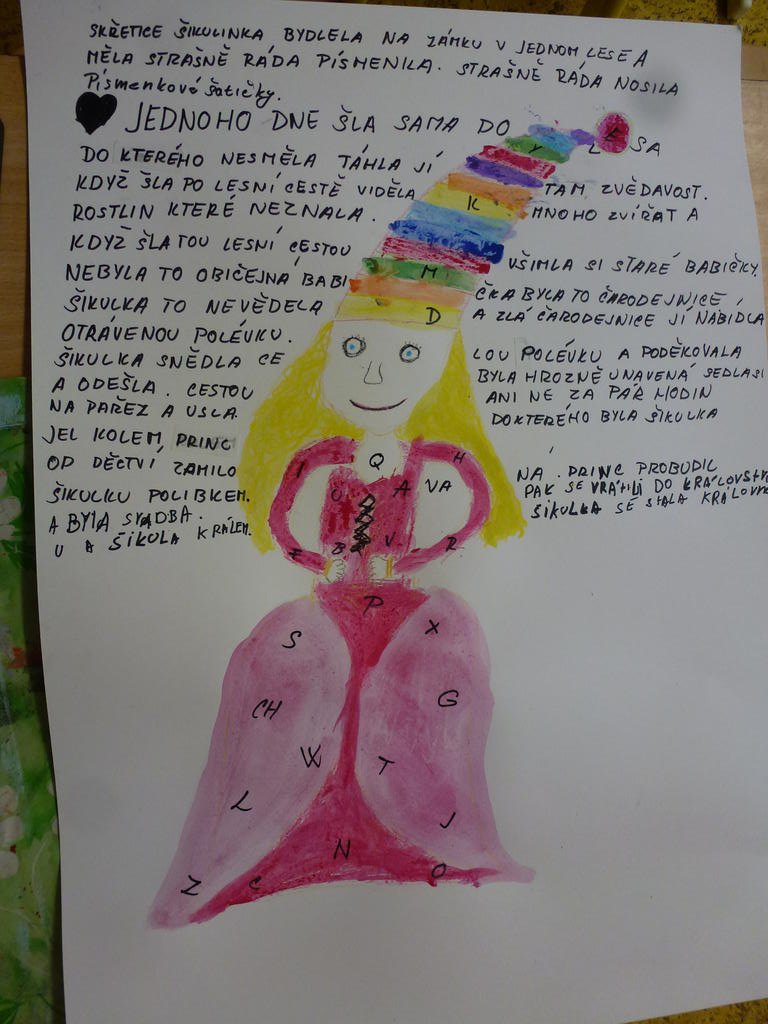 SKŘETICE ŠIKULINKA BYDLELA NA ZÁMKU V JEDNOM LESE A
MĚLA STRAŠNĚ RÁDA PÍSMENKA. STRAŠNĚ RÁDA NOSILA
Písmenkové šatičky.
JEDNOHO DNE ŠLA SAMA DO LESA
DO KTERÉHO NESMĚLA TÁHLA JÍ TAM ZVĚDAVOST.
KDYŽ ŠLA PO LESNÍ CESTĚ VIDĚLA MNOHO ZVÍŘAT A
ROSTLIN KTERÉ NEZNALA.
KDYŽ ŠLA TOU LESNÍ CESTOU VŠIMLA SI STARÉ BABIČKY.
NEBYLA TO OBIČEJNÁ BABIČKA BYLA TO ČARODEJNICE,
ŠIKULKA TO NEVĚDELA A ZLÁ ČARODEJNICE JÍ NABÍDLA
OTRÁVENOU POLÉVKU.
ŠIKULKA SNĚDLA CELOU POLÉVKU A PODĚKOVALA
A ODEŠLA. CESTOU BYLA HROZNĚ UNAVENÁ SEDLA SI
NA PAŘEZ A USLA. ANI NE ZA PÁR HODIN
JEL KOLEM PRINC DO KTERÉHO BYLA ŠIKULKA
OD DĚCTVÍ ZAMILOVANÁ. PRINC PROBUDIL
ŠIKULKU POLIBKEM. PAK SE VRÁTILI DO KRÁLOVSTV
A BYLA SVADBA. ŠIKULKA SE STALA KRÁLOVN
U A ŠIKULA KRÁLEM.
Y
K
M
D
I
Q
H
U
A
E
B
V
R
P
S
X
CH
G
W
T
L
J
N
Z
C
O